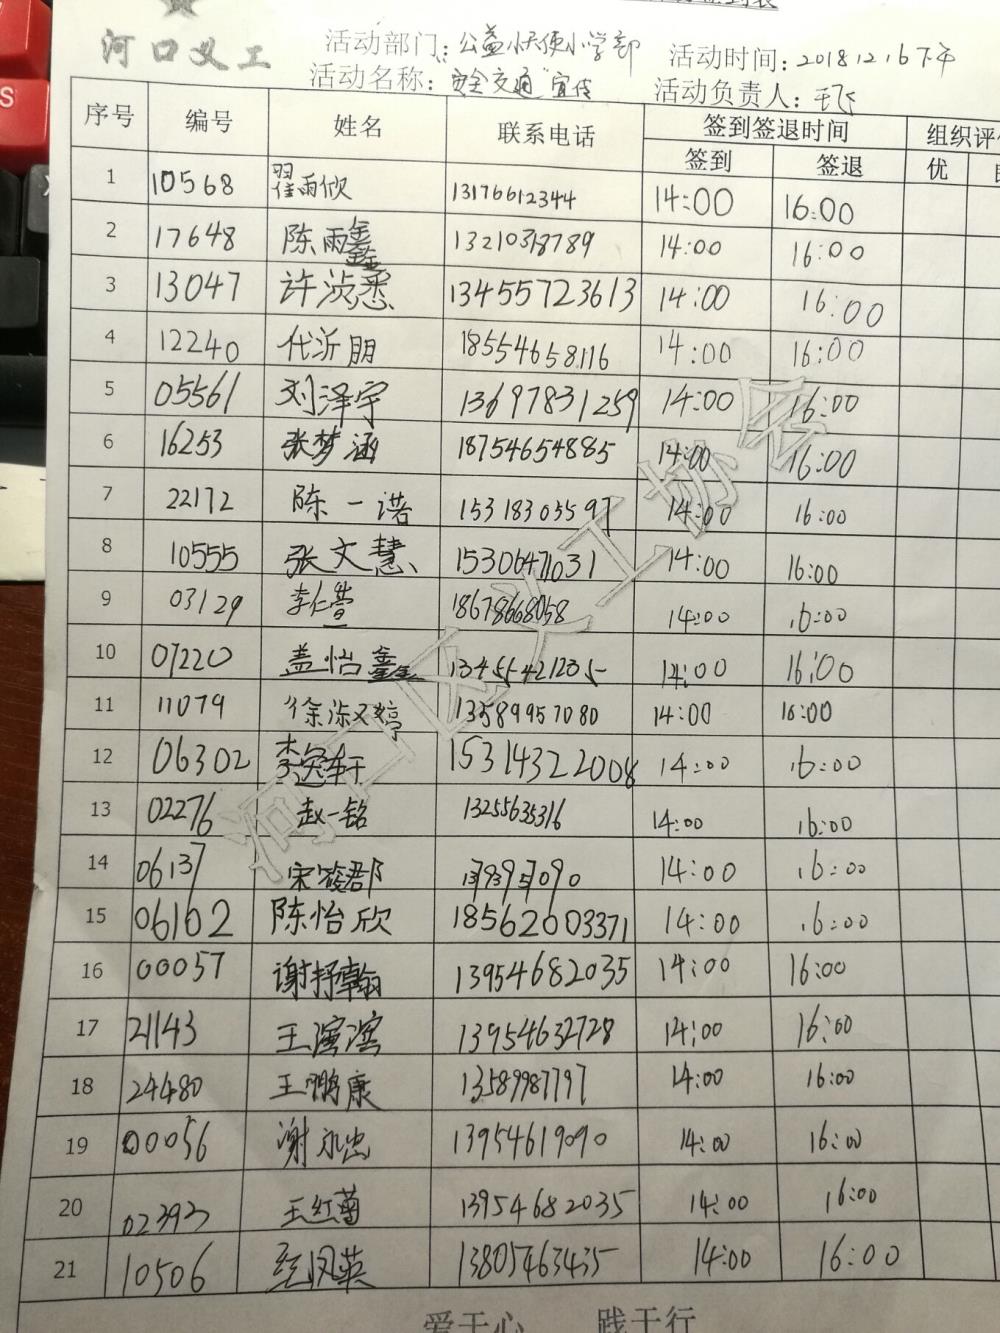 河口义工
活动部门：公益小天使小学部 活动时间：2018.12.16下午
活动名称："安全交通"宣传 活动负责人：王飞
序号 编号 姓名 联系电话 签到签退时间 组织评
签到 签退 优
1 10568 翟雨欣 13176612344 14:00 16:00
2 17648 陈雨鑫 13210318789 14:00 16:00
3 13047 许浈悉 13455723613 14:00 16:00
4 12240 代沂朋 18554658116 14:00 16:00
5 05561 刘泽宇 13697831259 14:00 16:00
6 16253 张梦涵 18754654885 14:00 16:00
7 22172 陈一诺 15318305597 14:00 16:00
8 10555 张文慧 15306471031 14:00 16:00
9 03129 李仁萱 18678668058 14:00 16:00
10 07220 盖怡鑫 13455421205 14:00 16:00
11 11079 徐涂又婷 13589957080 14:00 16:00
12 06302 李冠轩 15314322008 14:00 16:00
13 02276 赵一铭 13255635316 14:00 16:00
14 06137 宋筱郡 14:00 16:00
15 06102 陈怡欣 18562003371 14:00 16:00
16 00057 谢抒翰 13954682035 14:00 16:00
17 21143 王滨滨 13954632728 14:00 16:00
18 24480 王鹏康 13589987797 14:00 16:00
19 00056 谢永忠 13954619090 14:00 16:00
20 02393 王红菊 13954682035 14:00 16:00
21 10506 凤英 13805463435 14:00 16:00
河口区义工协会
爱于心 践于行